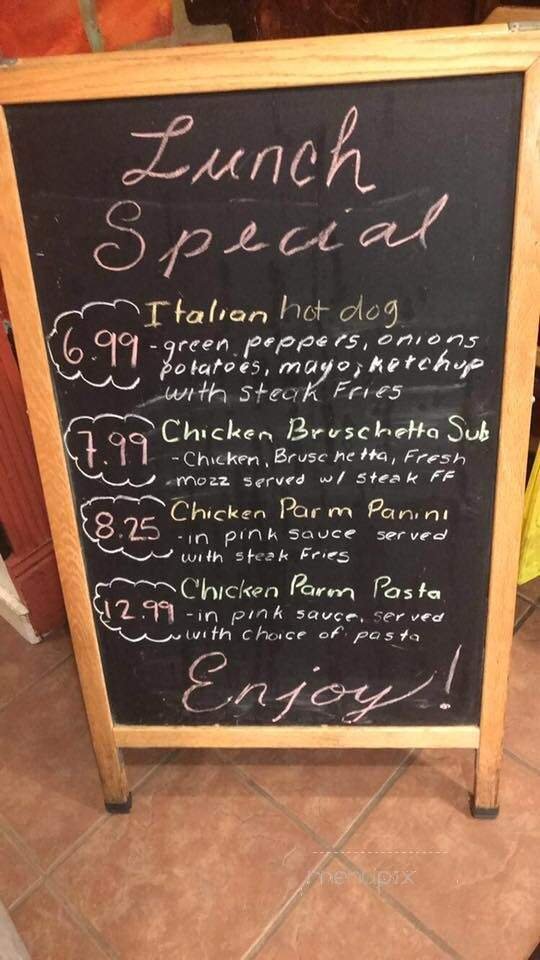 Lunch
Special
6.99
Italian hot dog
-green peppers, onions
potatoes, mayo, ketchup
with steak Fries
7.99
Chicken Bruschetta Sub
-Chicken, Bruschetta, Fresh
mozz served w/ steak FF
8.25
Chicken Parm Panini
-in pink sauce served
with steak Fries
12.99
Chicken Parm Pasta
-in pink sauce, served
with choice of pasta
Enjoy!
menupix